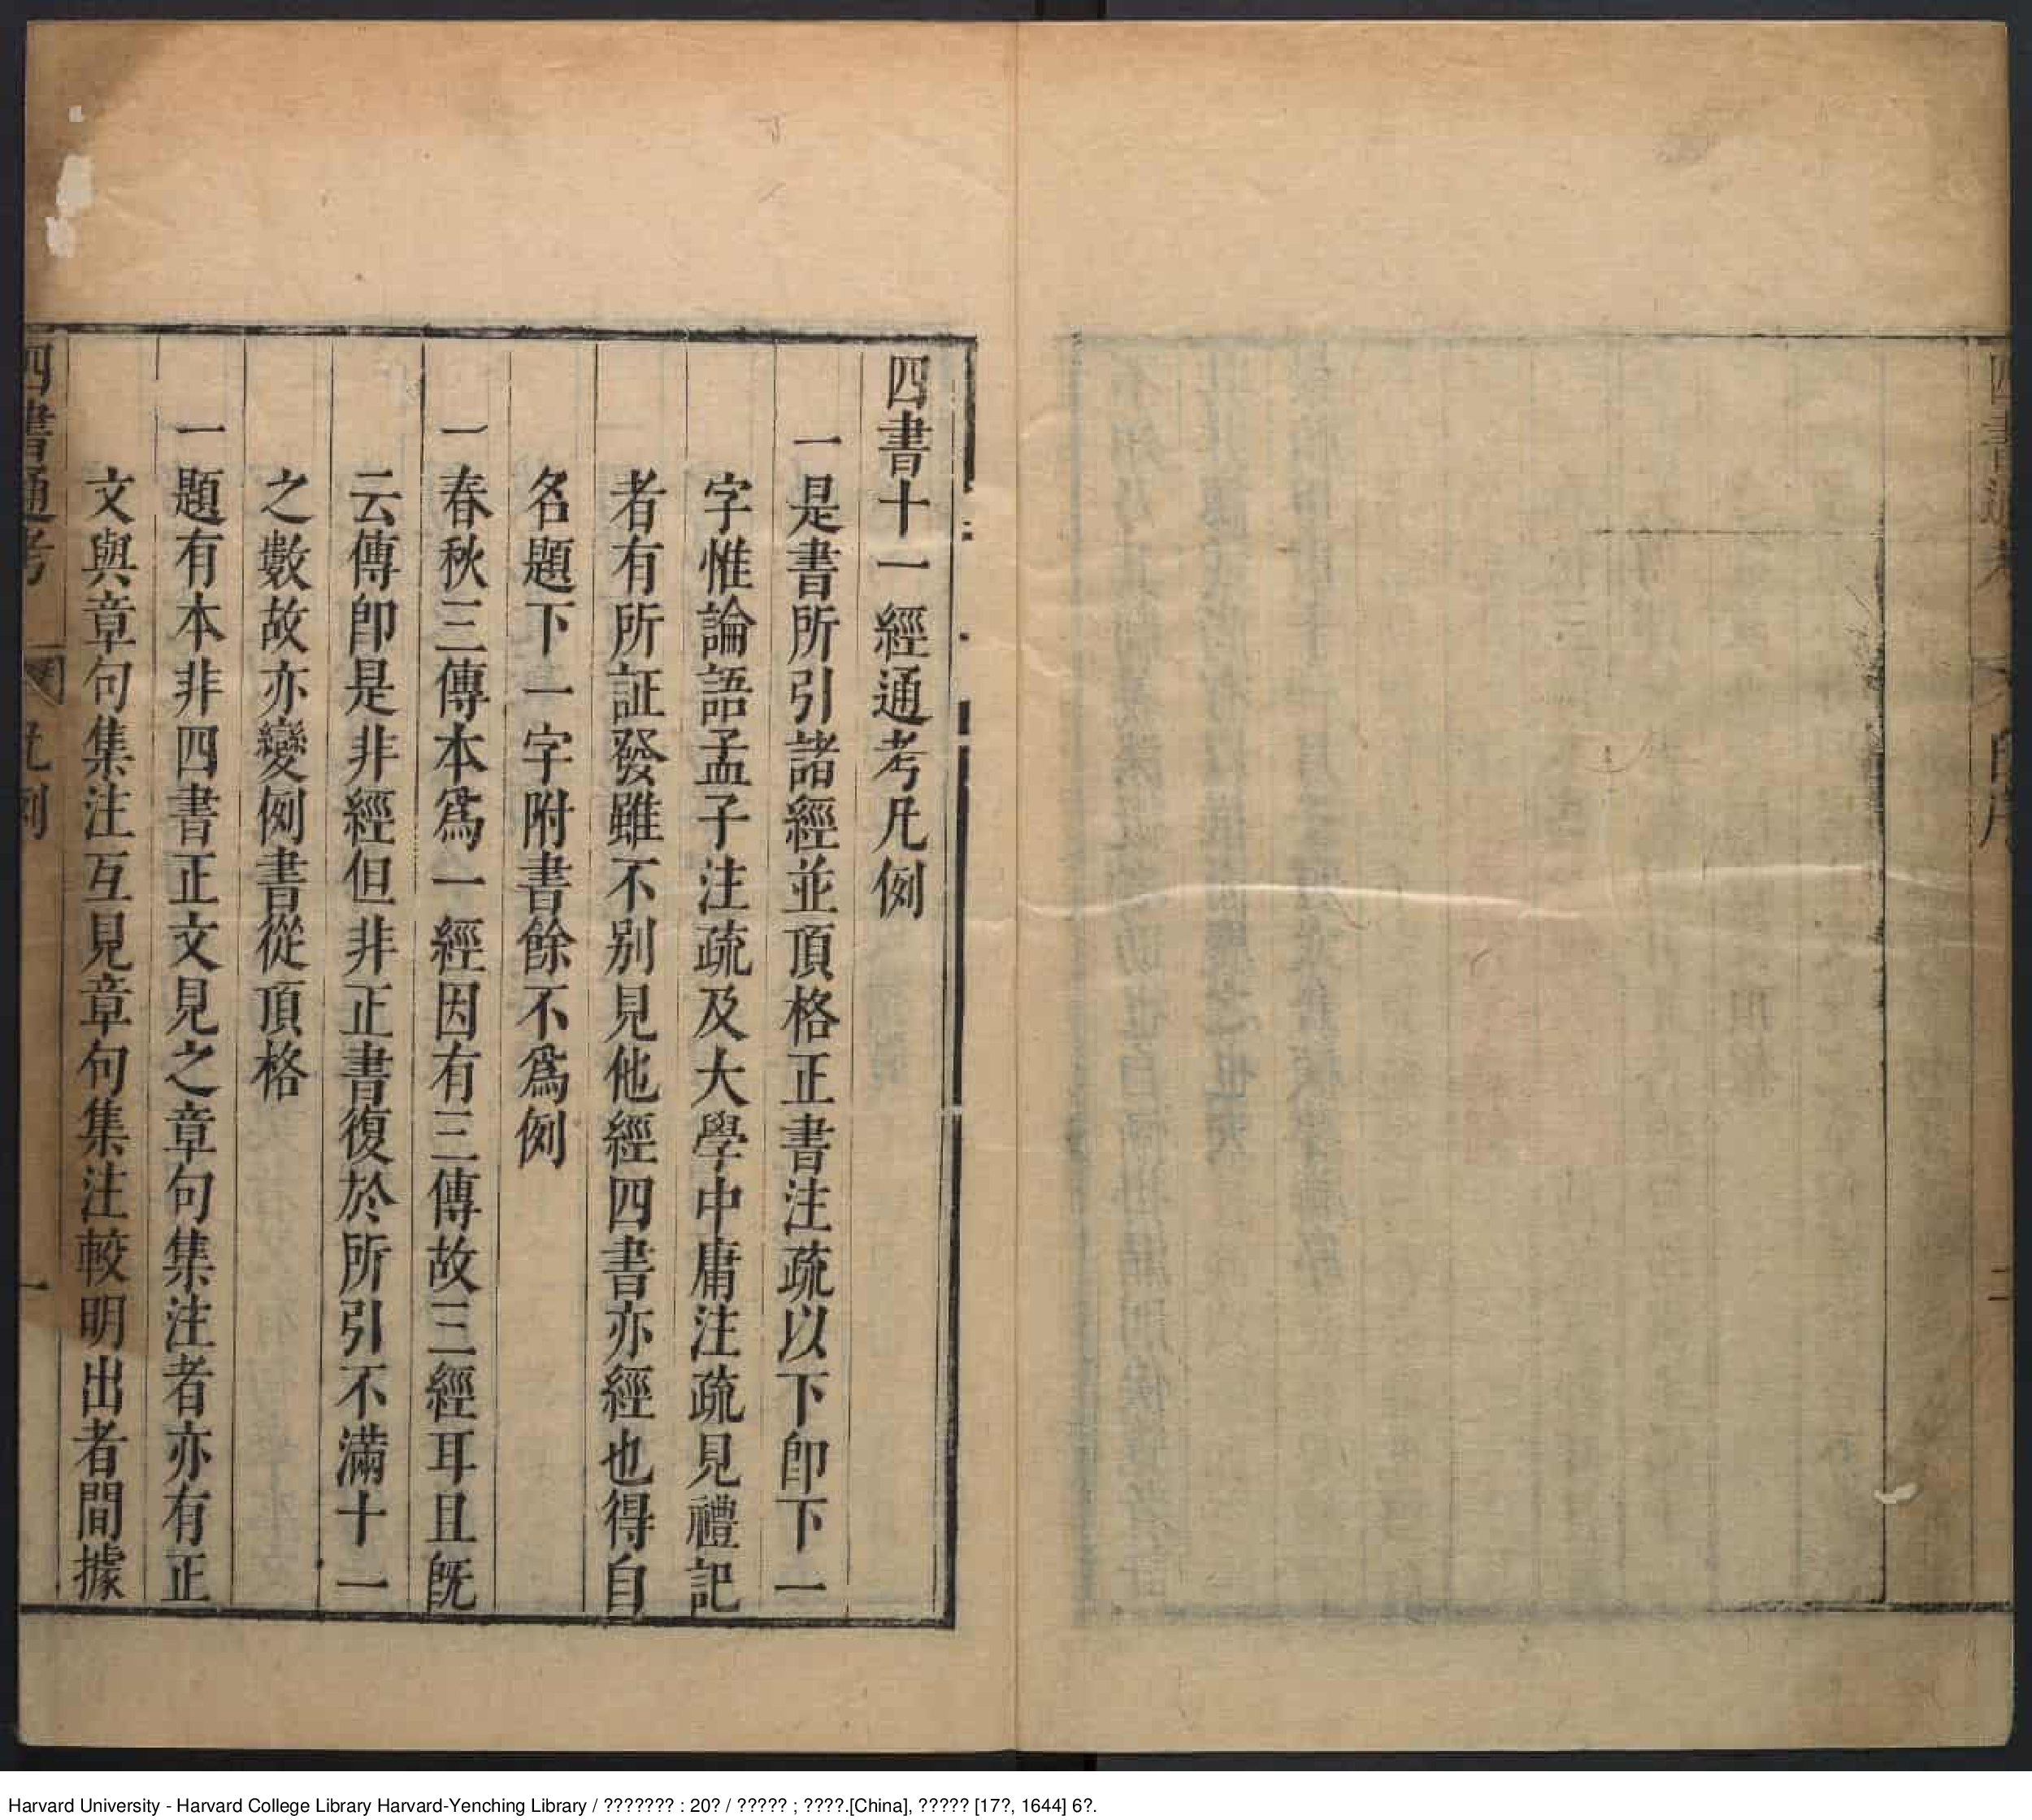 四書十一經通考凡例
一是書所引諸經並頂格正書注疏以下卽下一
字惟論語孟子注疏及大學中庸注疏見禮記
者有所証發雖不别見他經四書亦經也得自
名題下一字附書餘不爲例
一春秋三傳本爲一經因有三傳故三經耳且旣
云傳卽是非經但非正書復於所引不滿十一
之數故亦變例書從頂格
一題有本非四書正文見之章句集注者亦有正
文與章句集注互見章句集注較明出者間據
四書通考 凡例 一
Harvard University - Harvard College Library Harvard-Yenching Library / ??????? : 20? / ????? ; ????.[China], ????? [17?, 1644] 6?.